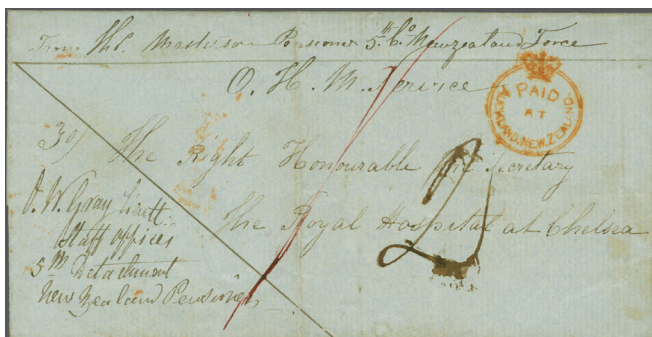 From Thos. Masterson Pensioner 5th Co. New Zealand Force
O. H. M. Service
PAID
AT
AUCKLAND, NEW ZEALAND.
The Right Honourable The Secretary
The Royal Hospital at Chelsea
2
D. W. Gray Lieutt.
Staff officer
5th Detachment
New Zealand Pensioners